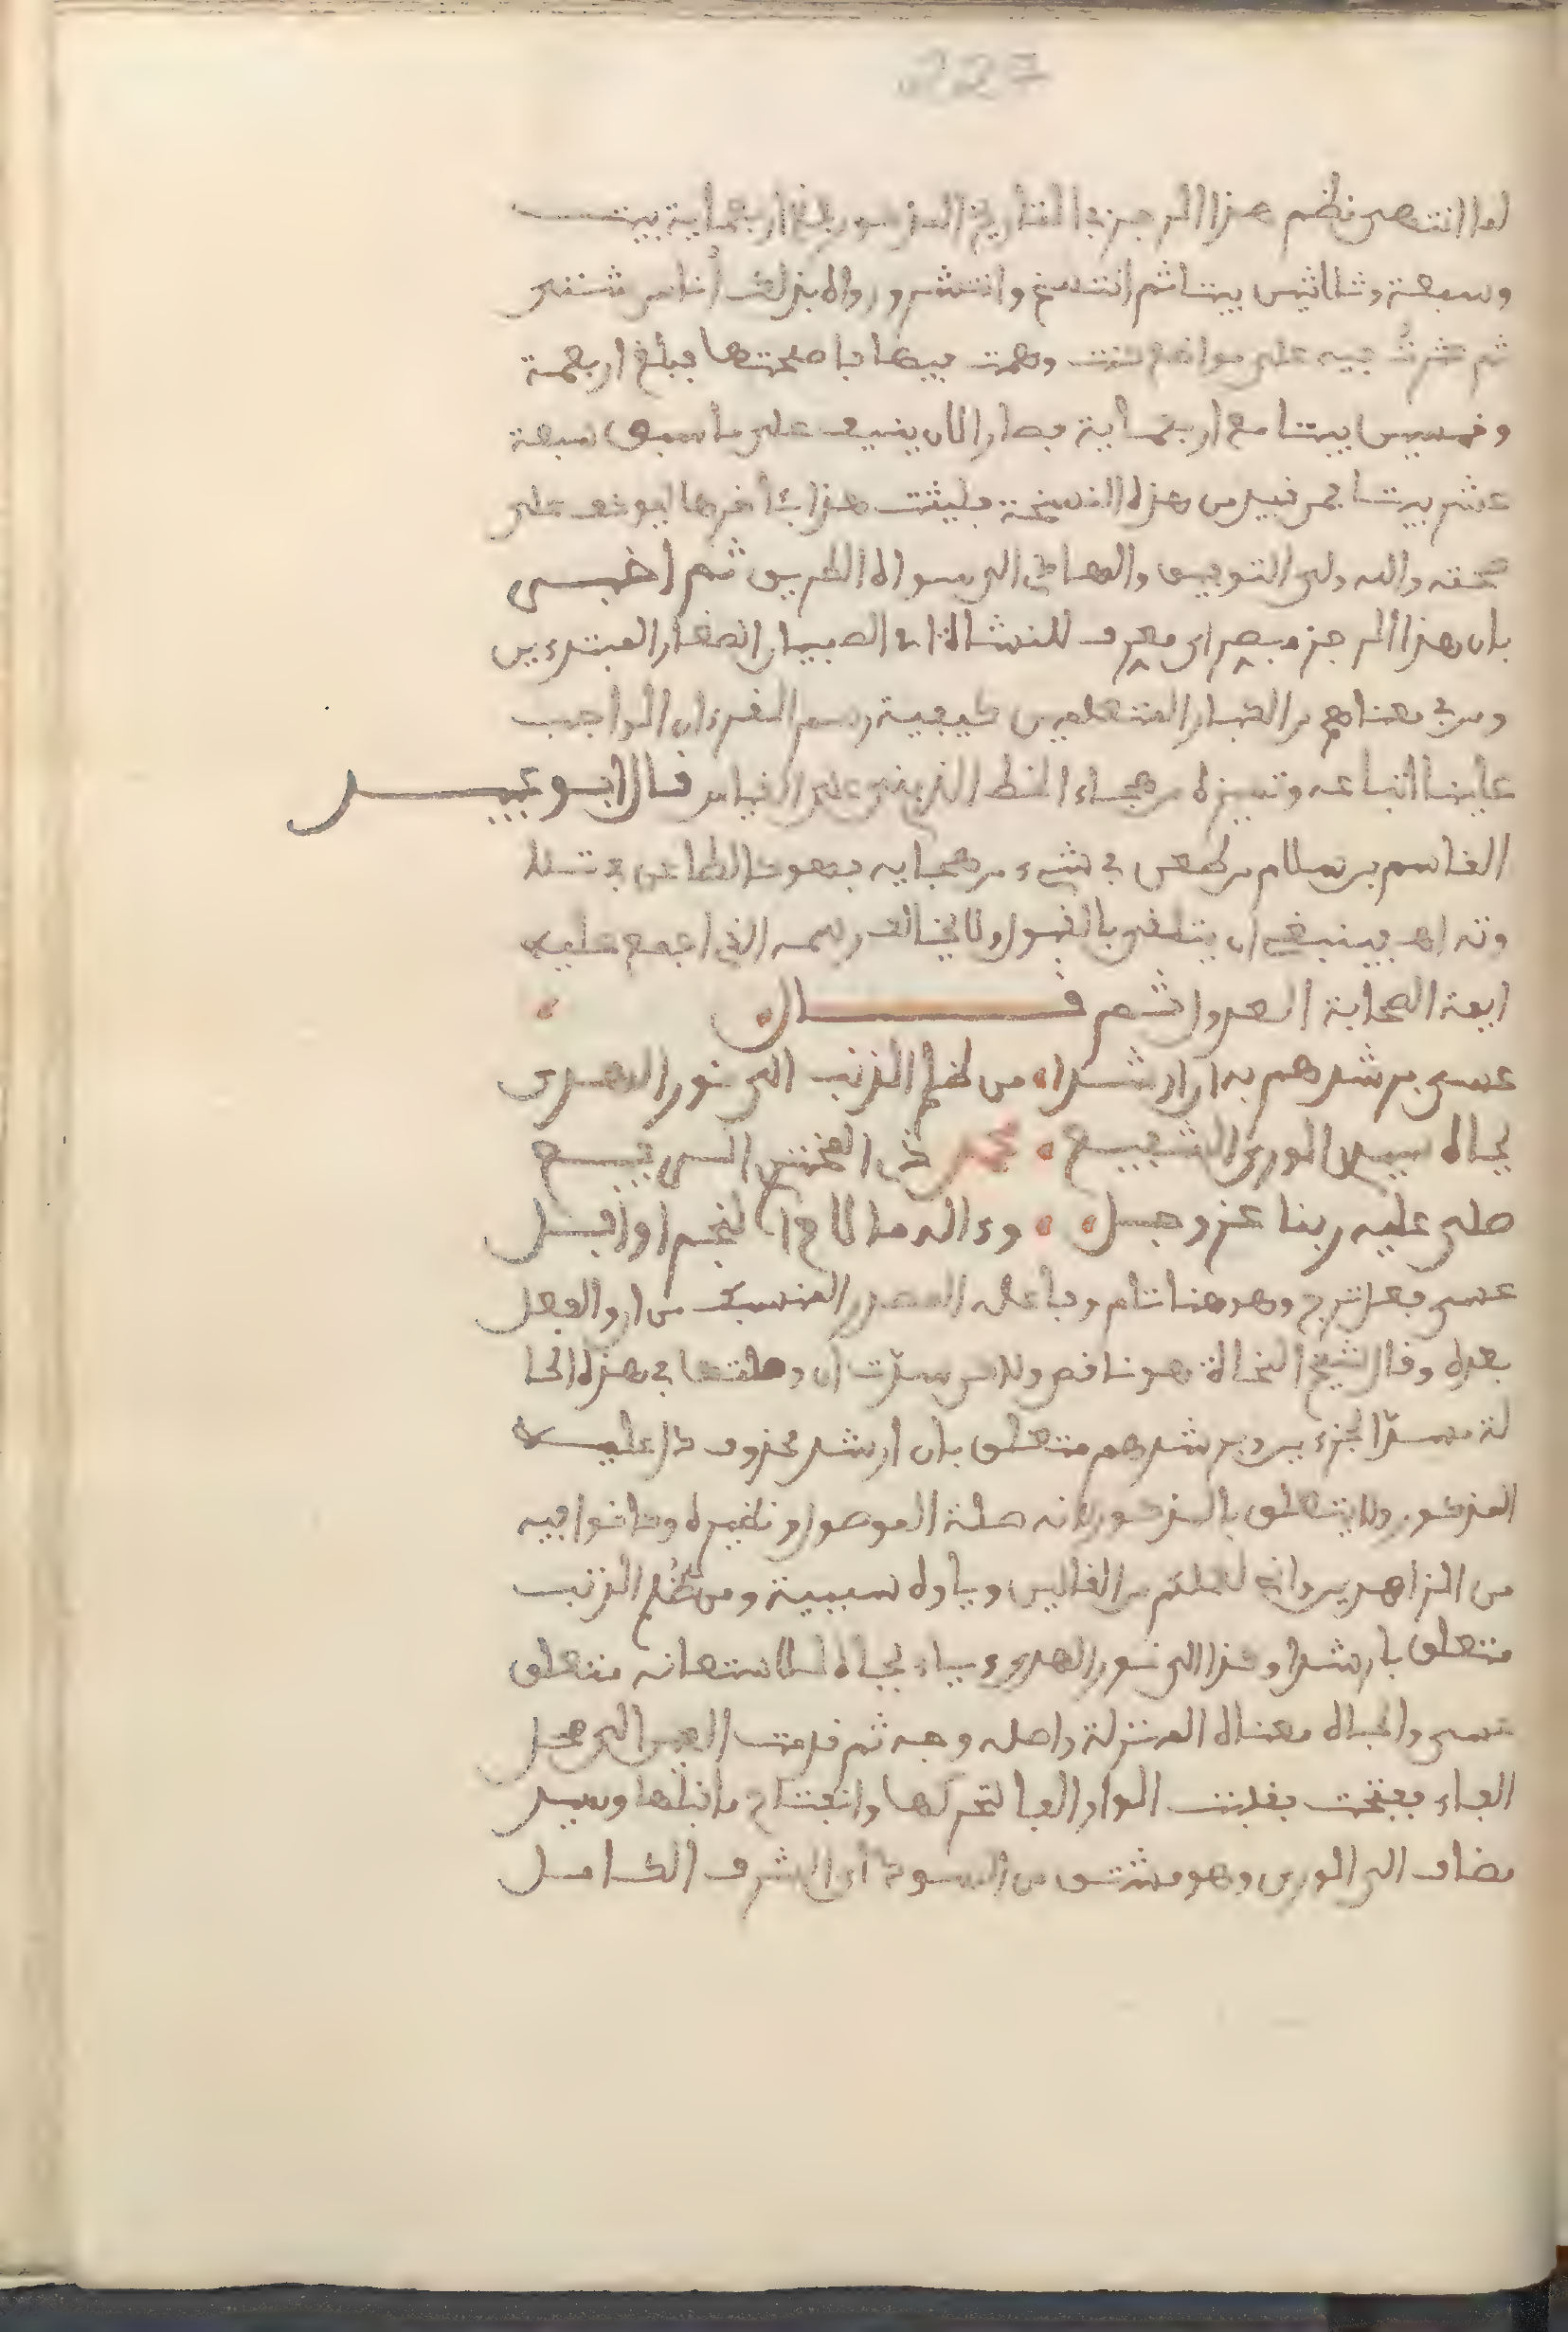 227
لما انتهى نظم هذا الرجز في التاريخ المذكور بلغ اربعماية بيت
وسبعة وثلاثين بيتا ثم انتسخ وانتشر ورواه بذلك أناس شتى
ثم عثرتُ فيه على مواضع كنت وهمت فيها فاصلحتها فبلغ اربعة
وخمسين بيتا مع اربعماية فصار الان ينيف على ما سبق سبعة
عشر بيتا فمن قيد من هذه النسخة فليثبت هذا بئاخرها ليوقف على
صحته والله ولي التوفيق والهادي الى سواء الطريق ثم اخبر
بان هذا الرجز مبصر اي معرف للنشأة اي الصبيان الصغار المبتدءين
ومن في معناهم من الكبار المتعلمين كيفية رسم القرءان الواجب
علينا اتباعه وتمييزه من هجاء الخط الذي بني على القياس قال ابو عبيد
القاسم بن سلام من طعن في شيء من هجايه فهو كالطاعن في تلا
وته اهـ فينبغي ان يتلقى بالقبول ولا يخالف رسمه الذي اجمع عليه
ايمة الصحابة العدول ثم قال
عسى برشدهم به ان ارشدا من ظلم الذنب الى نور الهدى
بجاه سيد الورى الشفيع محمد ذي المحتد الرفيع
صلى عليه ربنا عز وجل وءاله ما لاح نجم او افل
عسى فعل ترج وهو هنا تام وفاعله المصدر المنسبك من ان والفعل
بعده وقال الشيخ ابن خالة هو ناقص ولاكن سدت ان وصلتها في هذه الحا
لة مسد الجزءين وبرشدهم متعلق بان ارشد محذوف دل عليه
المذكور ولا يتعلق بالمذكور لانه صلة الموصول ونظيره وكانوا فيه
من الزاهدين واني لعملكم من القالين وباء به سببية ومن ظلم الذنب
متعلق بارشدا وكذا الى نور الهدى وباء بجاه للاستعانة متعلق
بعسى والجاه معناه المنزلة واصله وجه ثم قدمت العين الى محل
الفاء ففتحت فقلبت الواو الفا لتحركها وانفتاح ما قبلها وسيد
مضاف الى الورى وهو مشتق من السودد اي الشرف الكامل